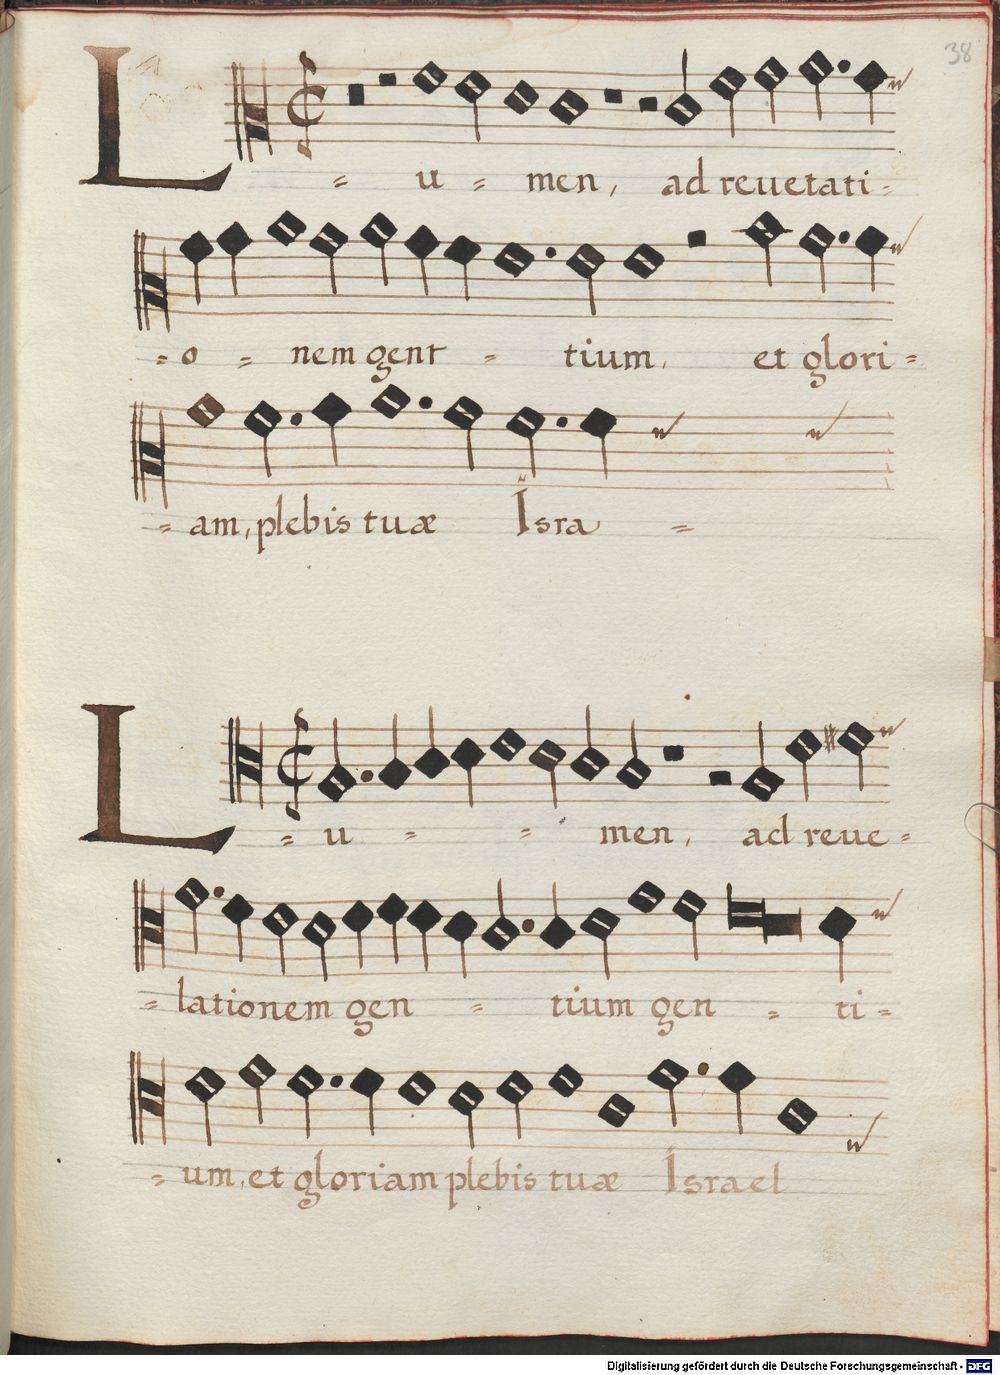 38
L = u = men, ad reuetati =
= o = nem gent = tium, et glori =
= am, plebis tuæ Isra =
L = u = = men, ad reue =
= lationem gen = tium gen = ti =
= um, et gloriam plebis tuæ Israel
Digitalisierung gefördert durch die Deutsche Forschungsgemeinschaft - DFG